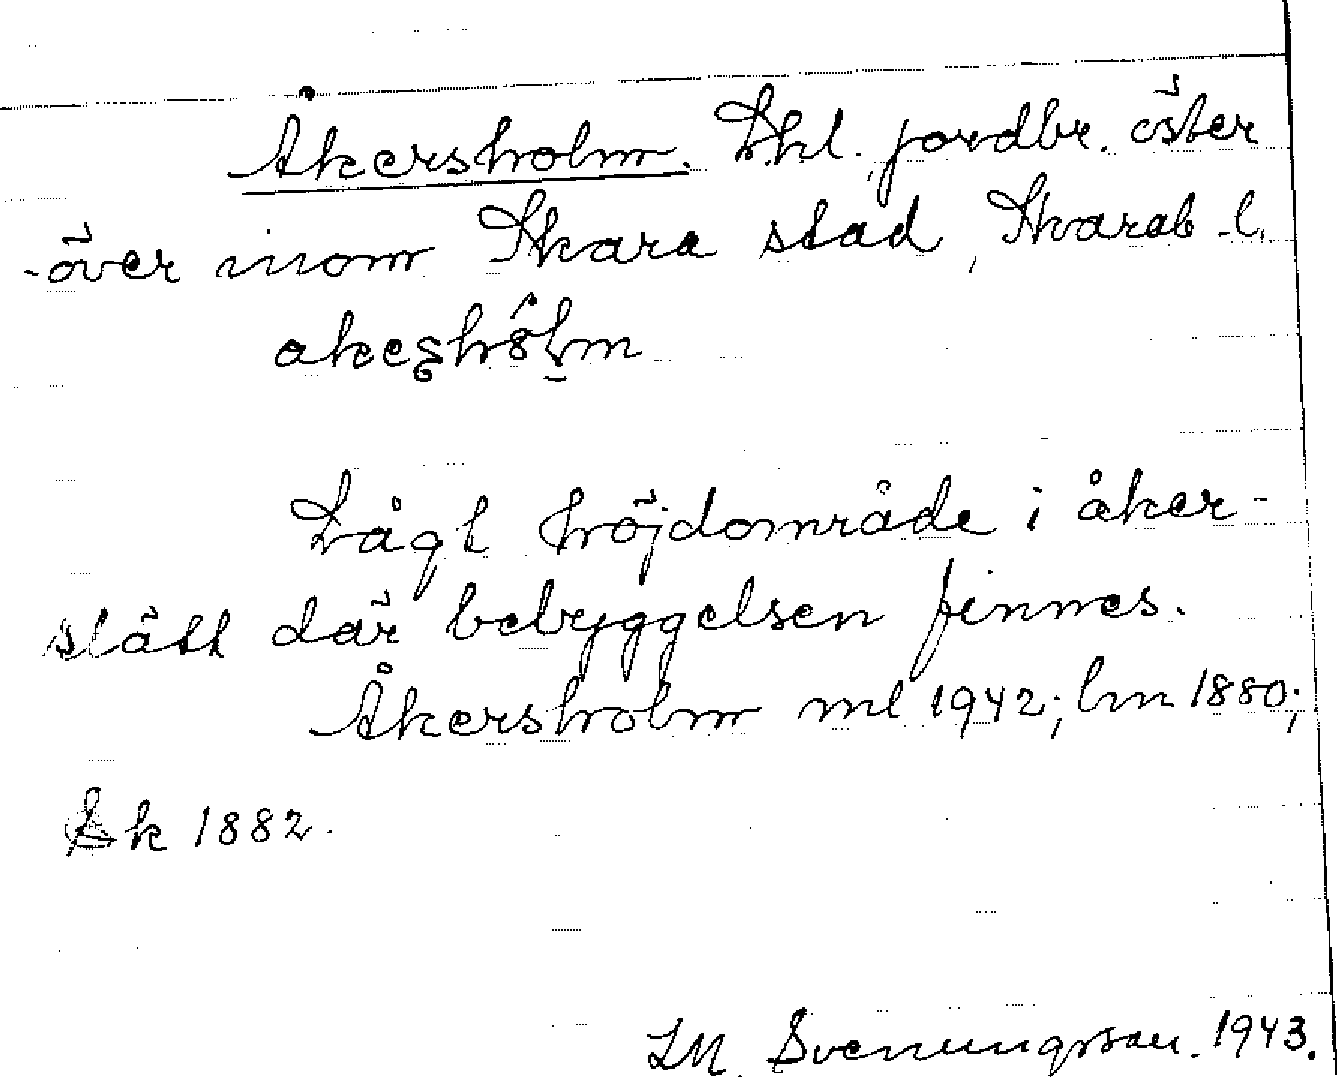 Åkersholm. Lhl. jordbr. öster
-över inom Skara stad, Skarab. l.
Lågt höjdområde i åker-
slätt där bebyggelsen finnes.
Åkersholm ml 1942; lm 1880;
Sk 1882.
Svenungsson. 1943.